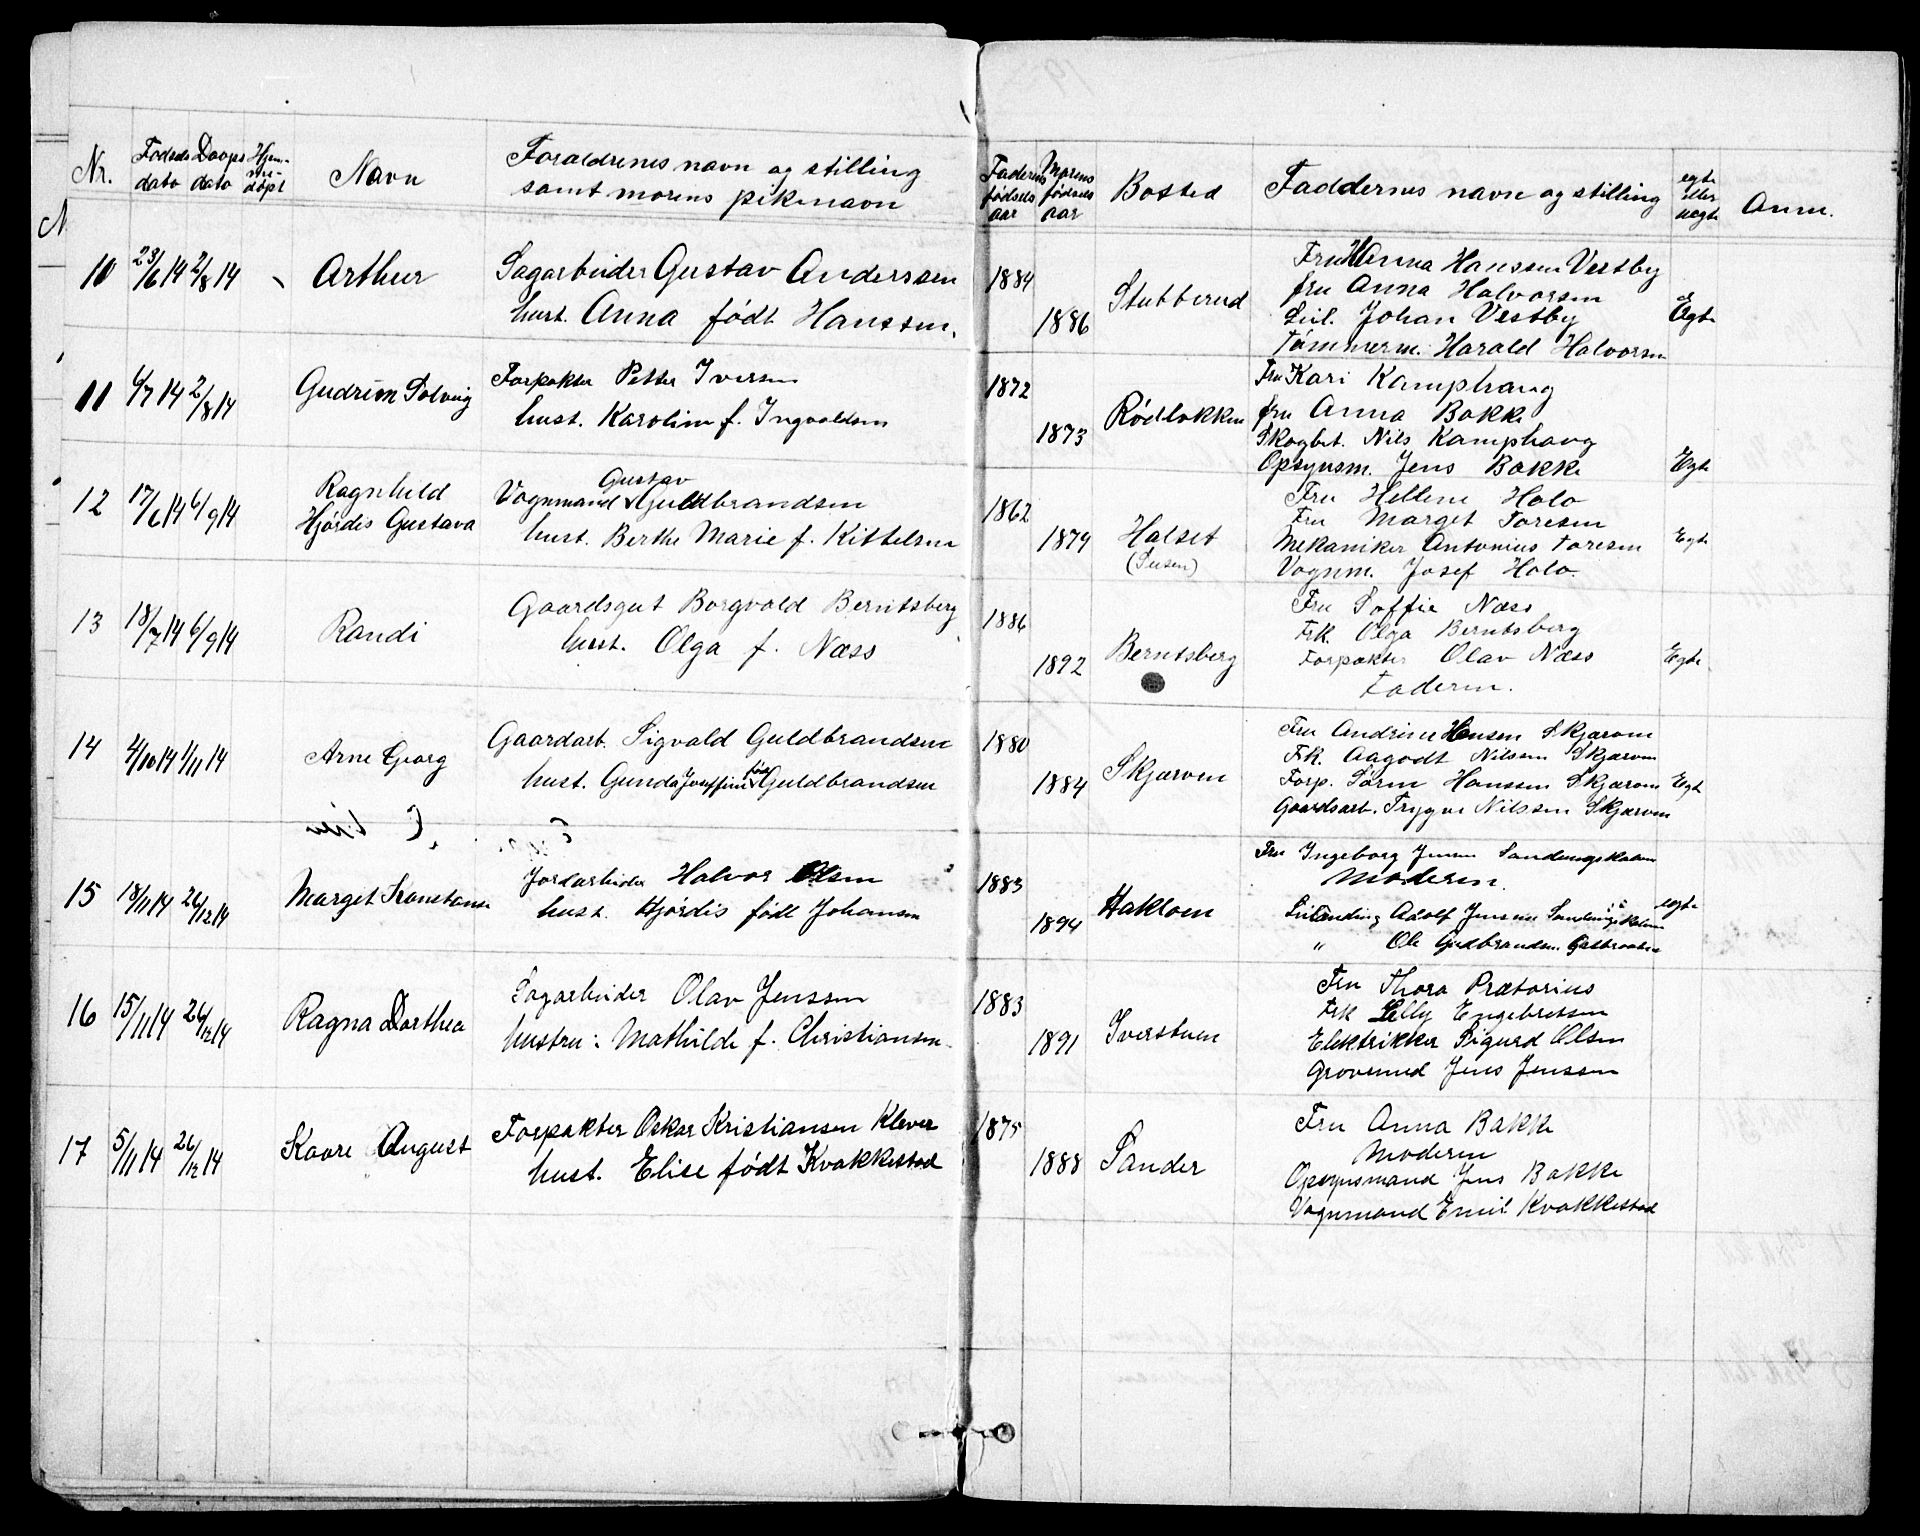 Nr. Fødselsdato Daapsdato Hjemmedøpt Navn Foraldrenes navn og stilling samt morens pikenavn Faderens fødselsaar Morens fødselsaar Bosted Faddernes navn og stilling egte eller uegte Anm.
10 23/6 14 2/8 14 Arthur
Sagarbeider Gustav Anderssen
hust. Anna født Hanssen.
1884
1886
Stubberud
Fru Hanna Hanssen Vestby
fru Anna Halvorsen
Johan Vestby
Tømmerm. Harald Halvorsen
Egte
11 4/7 14 2/8 14 Gudrun Solveig
Forpakter Petter Iversen
hust. Karoline f. Ingvaldsen
1872
1873
Rødlokken
Fru Kari Kamphaug
fru Anna Bakke
Skogbet. Nils Kamphaug
Opsynsm. Jens Bakke
Egte
12 17/6 14 6/9 14 Ragnhild
Hjørdis Gustava
Gustav
Vognmand Guldbrandsen
hust. Berthe Marie f. Kittelsen
1862
1879
Halset
Fru Hellene Holo
Fru Marget Toresen
Mekaniker Antonius Toresen
Vognm. Josef Holo.
Egte
13 18/7 14 6/9 14 Randi
Gaardsgut Borgvald Berntsberg
hust. Olga f. Næss
1886
1892
Berntsberg
Fru Soffie Næss
Frk. Olga Berntsberg
Forpakter Olav Næss
Faderen.
Egte
14 4/10 14 1/11 14 Arne Georg
Gaardarb. Sigvald Guldbrandsen
hust. Gunda Joseffine født Guldbrandsen
1880
1884
Skjærven
Fru Andrine Hansen Skjærven
Frk. Aagodt Nilssen Skjærven
Forp. Søren Hanssen Skjærven
Gaardsarb. Trygve Nilssen Skjærven
Egte
15 18/11 14 26/12 14 Marget Konstanse
Jordarbeider Halvor Olsen
hust. Hjørdis født Johansen
1883
1894
Hakloen
Fru Ingeborg Jensen
Moderen.
Adolf Jensen
" Ole Gudbrandsen
egte
16 15/11 14 26/12 14 Ragna Dorthea
Sagarbeider Olav Jenssen
hustru: Mathilde f. Christiansen
1883
1891
Iverstuen
Fru Thora Prætorius
Frk Lelly Engebretsen
Elektrikker Sigurd Olsen
Grovsmed Jens Jenssen
17 5/11 14 26/12 14 Kaare August
Forpakter Oskar Kristiansen Klever
hust. Elise født Kvakkestad
1875
1888
Sander
Fru Anna Bakke
Moderen
Opsynsmand Jens Bakke
Vognmand Emil Kvakkestad